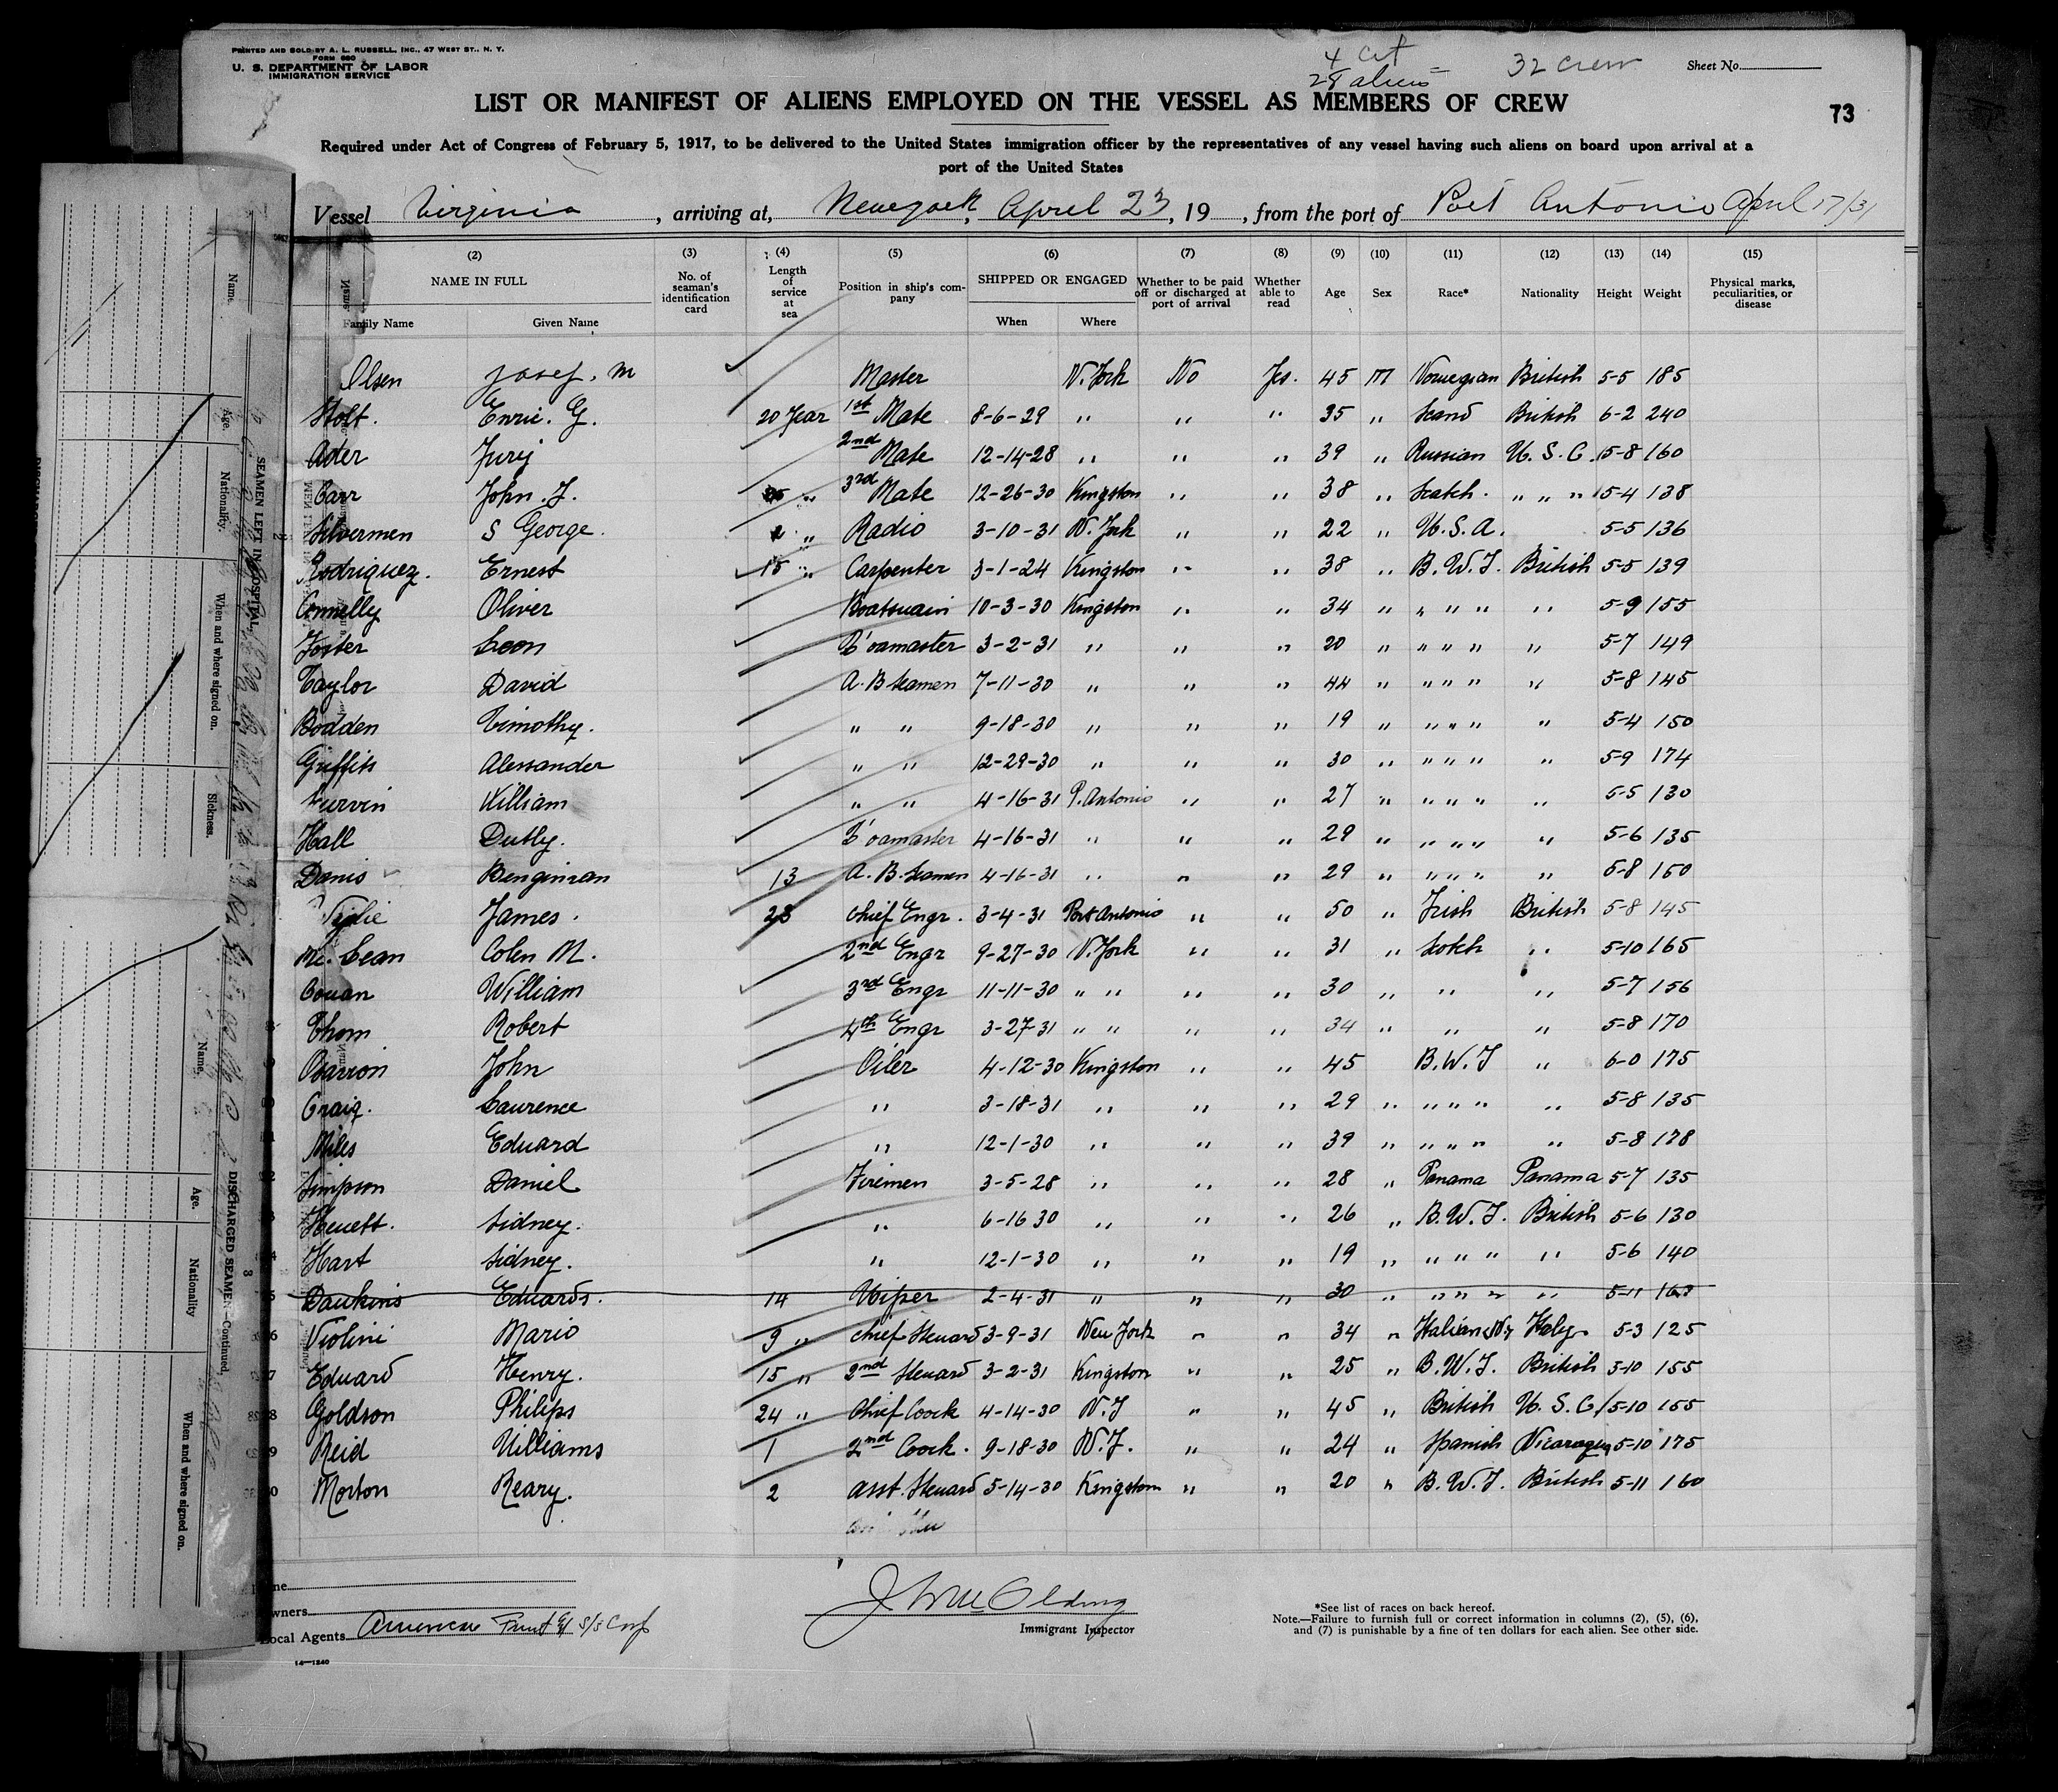 PRINTED AND SOLD BY A. L. RUSSELL, INC., 47 WEST ST., N. Y.
FORM 680
U. S. DEPARTMENT OF LABOR
IMMIGRATION SERVICE
4 cit
28 aliens =
32 crew
Sheet No.
LIST OR MANIFEST OF ALIENS EMPLOYED ON THE VESSEL AS MEMBERS OF CREW
73
Required under Act of Congress of February 5, 1917, to be delivered to the United States immigration officer by the representatives of any vessel having such aliens on board upon arrival at a
port of the United States
Vessel Virginia, arriving at, Newyork, April 23, 19, from the port of Port Antonio April 17/31
(2) (3) (4) (5) (6) (7) (8) (9) (10) (11) (12) (13) (14) (15)
NAME IN FULL
Family Name Given Name
No. of seaman's identification card
Length of service at sea
Position in ship's company
SHIPPED OR ENGAGED
When Where
Whether to be paid off or discharged at port of arrival
Whether able to read
Age Sex Race* Nationality Height Weight
Physical marks, peculiarities, or disease
Olsen Josef. M Master N. York No Yes. 45 M Norwegian British 5-5 185
Stolt. Enric. G. 20 Year 1st Mate 8-6-29 " " " 35 " Scand British 6-2 240
Ader Jurij 2nd Mate 12-14-28 " " " 39 " Russian U. S. C. 5-8 160
Carr John. J. " 3rd Mate 12-26-30 Kingston " " 38 " Scotch. " " " 5-4 138
Silvermen S George. " Radio 3-10-31 N. York " " 22 " U. S. A. 5-5 136
Rodriquez. Ernest 15 " Carpenter 3-1-24 Kingston " " 38 " B. W. I. British 5-5 139
Connelly Oliver Boatsuain 10-3-30 Kingston " " 34 " " " " " 5-9 155
Foster Leon 3-2-31 " " " 20 " " " " " 5-7 149
Taylor David A. B Seamen 7-11-30 " " " 44 " " " " " 5-8 145
Bodden Timothy. " " 9-18-30 " " " 19 " " " " " 5-4 150
Griffits Alessander " " 12-29-30 " " " 30 " " " " " 5-9 174
William " " 4-16-31 P. Antonio " " 27 " " " " " 5-5 130
Hall Dutly. 4-16-31 " " " 29 " " " " " 5-6 135
Danis Benginian 13 A. B. Seamen 4-16-31 " " " 29 " " " " " 5-8 150
James. 28 Chief Engr. 3-4-31 Port Antonio " " 50 " Irish British 5-8 145
Mc. Lean Colen M. 2nd Engr 9-27-30 N. York " " 31 " Scotch " 5-10 165
Couan William 3rd Engr 11-11-30 " " " " 30 " " " 5-7 156
Thom Robert 4th Engr 3-27-31 " " " " 34 " " " 5-8 170
Barrion John Oiler 4-12-30 Kingston " " 45 B. W. I " 6-0 175
Craig. Laurence " 3-18-31 " " " 29 " " " " " 5-8 135
Miles Eduard " 12-1-30 " " " 39 " " " " " 5-8 178
Simpson Daniel Firemen 3-5-28 " " " 28 " Panama Panama 5-7 135
Heuett. Sidney. " 6-16 30 " " " 26 " B. W. I. British 5-6 130
Hart Sidney. " 12-1-30 " " " 19 " " " " " 5-6 140
Daukins Eduards. 14 Wiper 2-4-31 " " " 30 " " " " " 5-11 168
Violini Mario 9 " Chief Steuard 3-9-31 New York " " 34 " Italian Italy 5-3 125
Eduard Henry. 15 " 2nd Steuard 3-2-31 Kingston " " 25 " B. W. I. British 5-10 155
Goldson Philips 24 " Chief Coock 4-14-30 N. Y " " 45 " British U. S. C 5-10 155
Reid Uilliams 1 2nd Coock. 9-18-30 N. Y. " " 24 " Spanish Nicaragua 5-10 175
Morton Reary. 2 asst. Steuard 5-14-30 Kingston " " 20 " B. W. I. British 5-11 160
Owners
Local Agents American Fruit & S/S Corp
Immigrant Inspector
*See list of races on back hereof.
Note.—Failure to furnish full or correct information in columns (2), (5), (6),
and (7) is punishable by a fine of ten dollars for each alien. See other side.
14—1240
SEAMEN LEFT IN HOSPITAL
Name. Age. Nationality. When and where signed on. Sickness.
DISCHARGED SEAMEN—Continued.
Name. Age. Nationality When and where signed on.